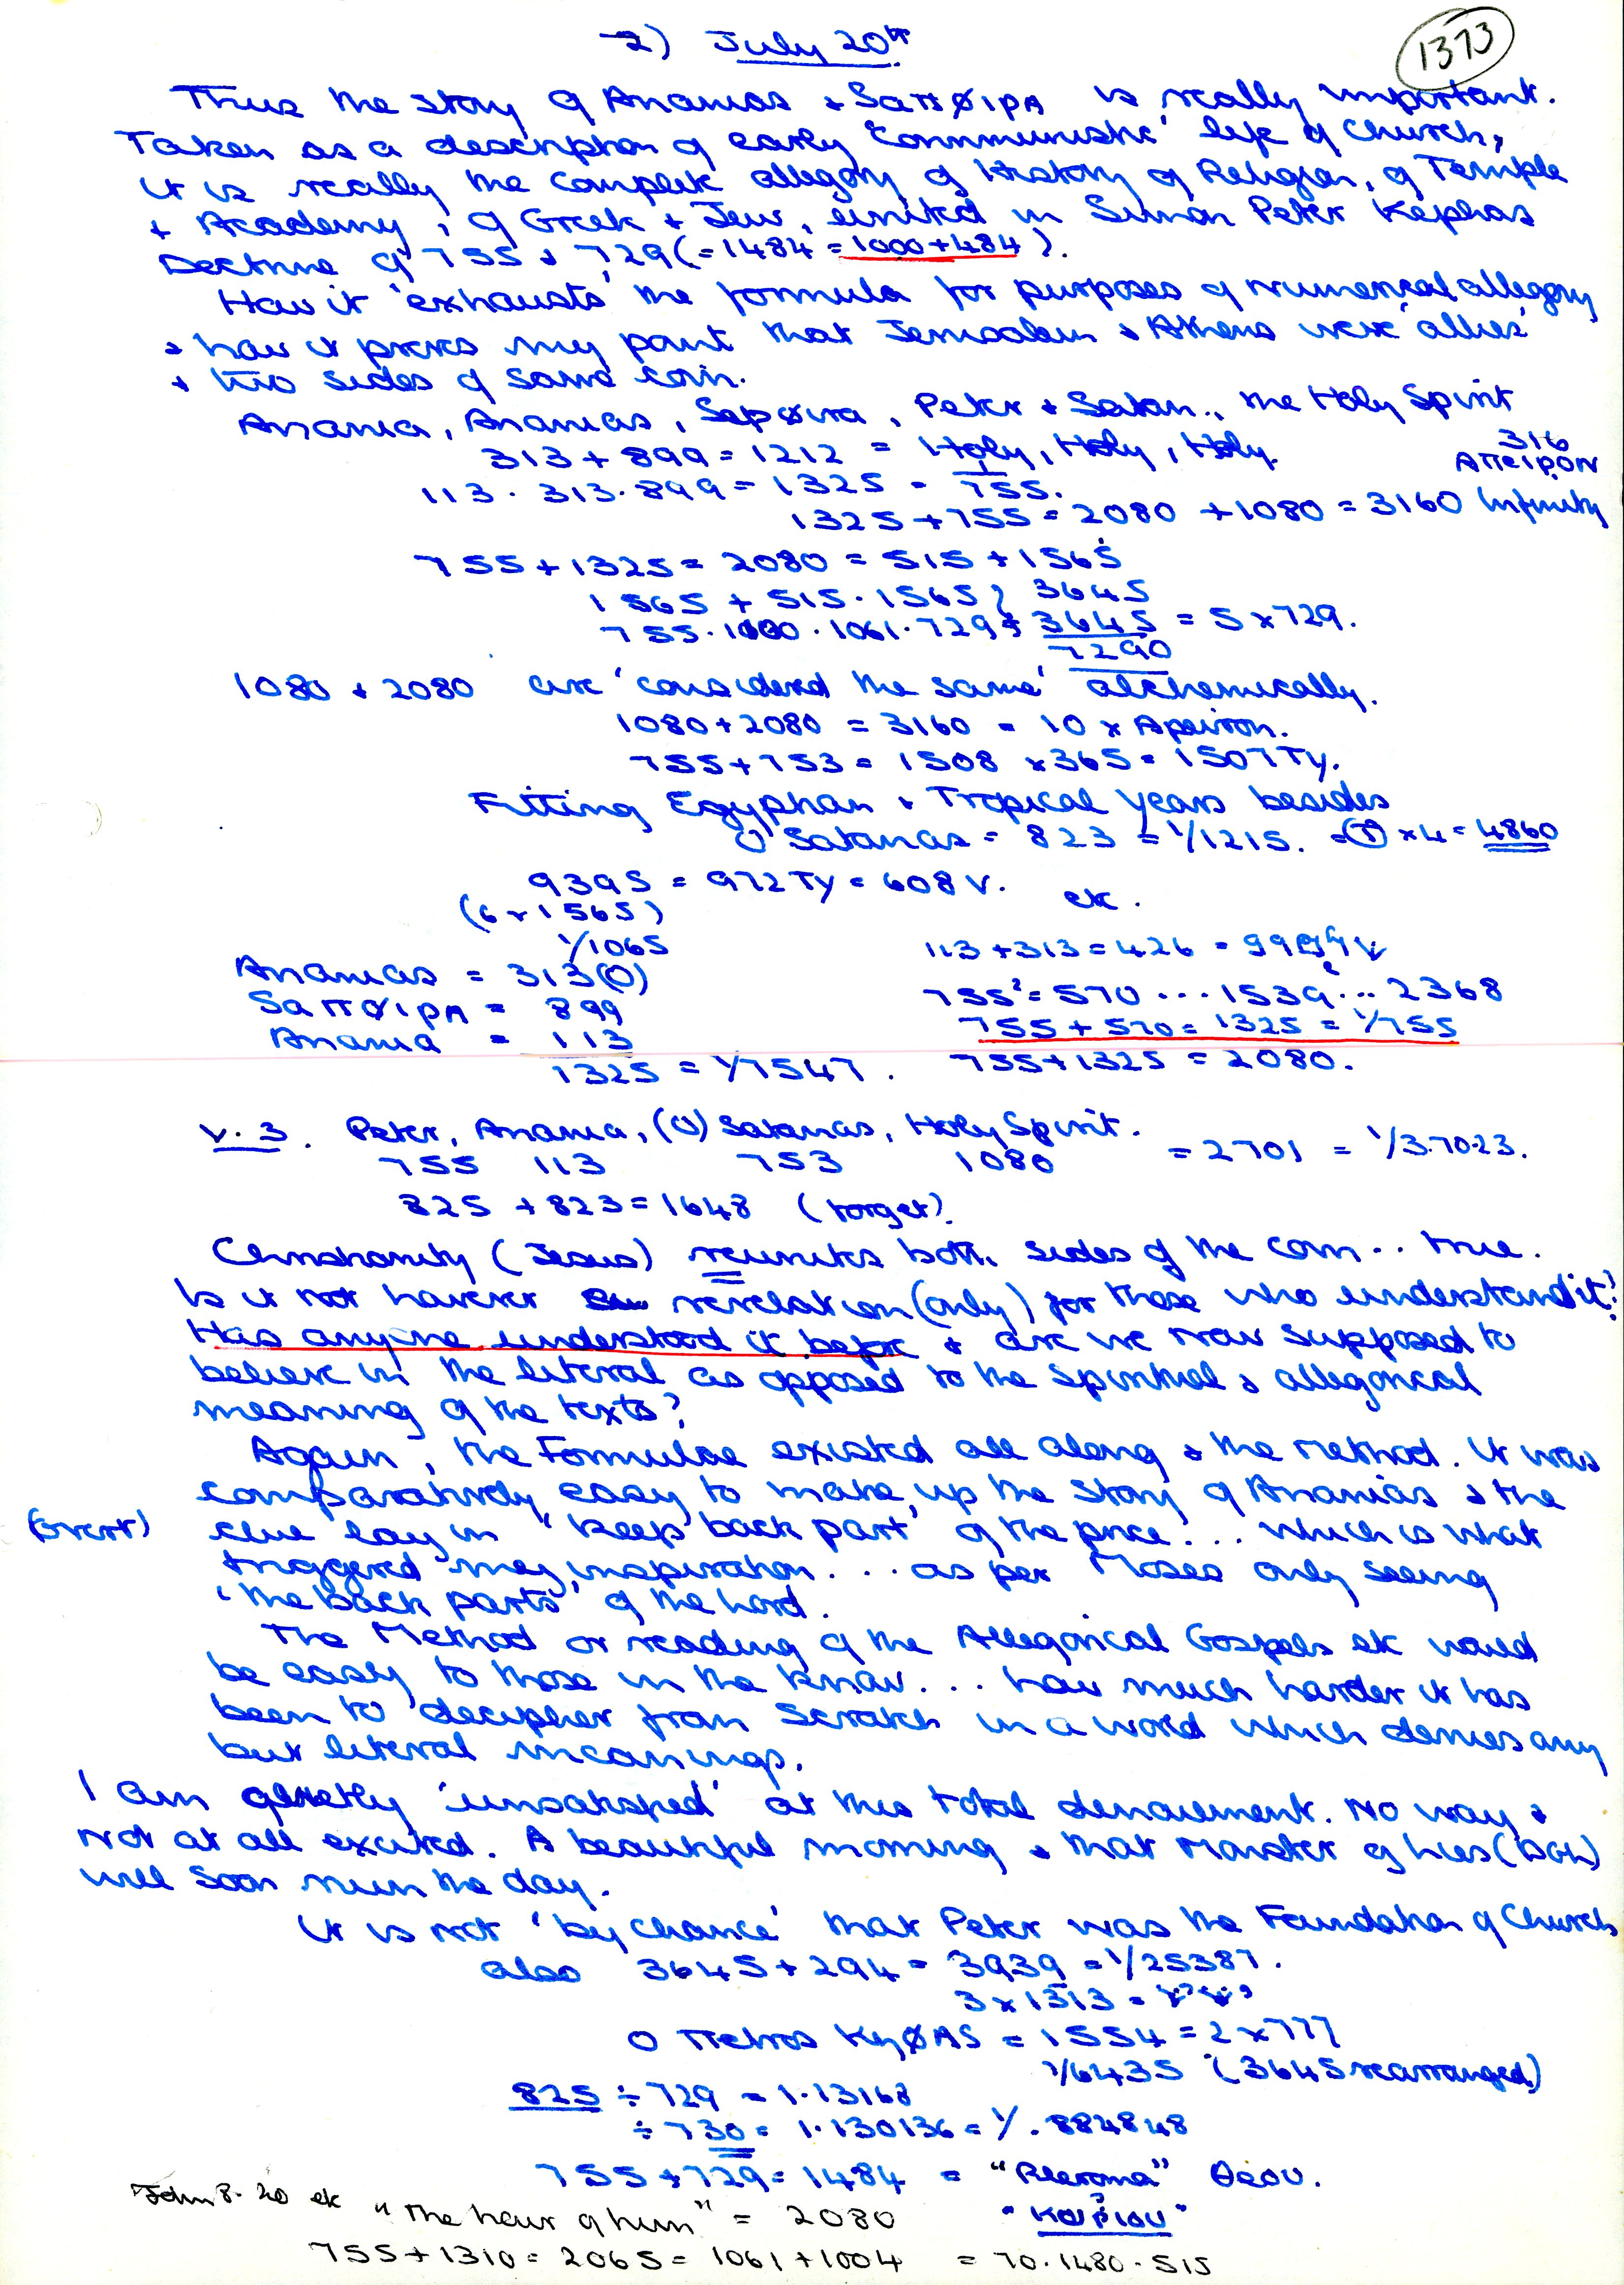 2) July 20th
1373
Thus the story of Ananias + Saπφιρα is really important.
Taken as a description of early 'communistic' life of Church,
it is really the complete allegory of History of Religion, of Temple
+ Academy, of Greek + Jew, united in Simon Peter Kephas
Doctrine of 755 + 729 (=1484 = 1000+484).
How it 'exhausts' the formula for purposes of numerical allegory
+ how it proves my point that Jerusalem + Athens were 'allies'
+ two sides of same coin.
Anania, Ananias, Sapφira, Peter + Satan., the Holy Spirit
313 + 899 = 1212 = Holy, Holy, Holy.
316
Aπειρον
113 . 313 . 899 = 1325 = 1/755.
1325 + 755 = 2080 + 1080 = 3160 Infinity
755 + 1325 = 2080 = 515 + 1565
1565 + 515 . 1565 } 3645
755 . 1100 . 1061 . 729 } 3645 = 5 x 729.
7290
1080 + 2080 are 'considered the same' alchemically.
1080 + 2080 = 3160 = 10 x Apeiron.
755 + 753 = 1508 x 365 = 1507 Ty.
Fitting Egyptian + Tropical years besides
O Satanas = 823 = 1/1215. x 4 = 4860
9395 = 972 Ty = 608 V. etc.
(6 x 1565)
1/1065
113 + 313 = 426
Ananias = 313(0)
755² = 570 ... 1539 ... 2368
Saπφιρα = 899
755 + 570 = 1325 = 1/755
Anania = 113
1325 = 1/7547. 755 + 1325 = 2080.
v. 3. Peter, Anania, (O) Satanas, Holy Spirit.
755 113 753 1080 = 2701 = 1/3.7023.
825 + 823 = 1648 (target).
Christianity (Jesus) reunites both sides of the coin .. true.
Is it not however revelation (only) for those who understand it?
Has anyone understood it before + are we now supposed to
believe in the literal as opposed to the spiritual + allegorical
meaning of the texts?
Again, the Formulae existed all along + the method. It was
comparatively easy to make up the story of Ananias + the
clue lay in 'keep back part' of the price ... which is what
triggered my inspiration ... as per Moses only seeing
'the back parts' of the Lord.
The Method or reading of the Allegorical Gospels etc would
be easy to those in the know ... how much harder it has
been to decipher from scratch in a world which denies any
but literal meanings.
I am quietly 'unsatisfied' at this total denouement. No way +
not at all excited. A beautiful morning + that Monster of lies
will soon ruin the day.
It is not 'by chance' that Peter was the Foundation of Church
also 3645 + 294 = 3939 = 1/25387.
3 x 1313 =
O Πetros KηφAS = 1554 = 2 x 777
1/6435 (3645 rearranged)
825 ÷ 729 = 1.13168
÷ 730 = 1.130136 = 1/.884848
755 + 729 = 1484 = "Pleroma" Θεου.
John 8.20 etc "The hour of him" = 2080 "Κυριου"
755 + 1310 = 2065 = 1061 + 1004 = 70 . 1480 . 515